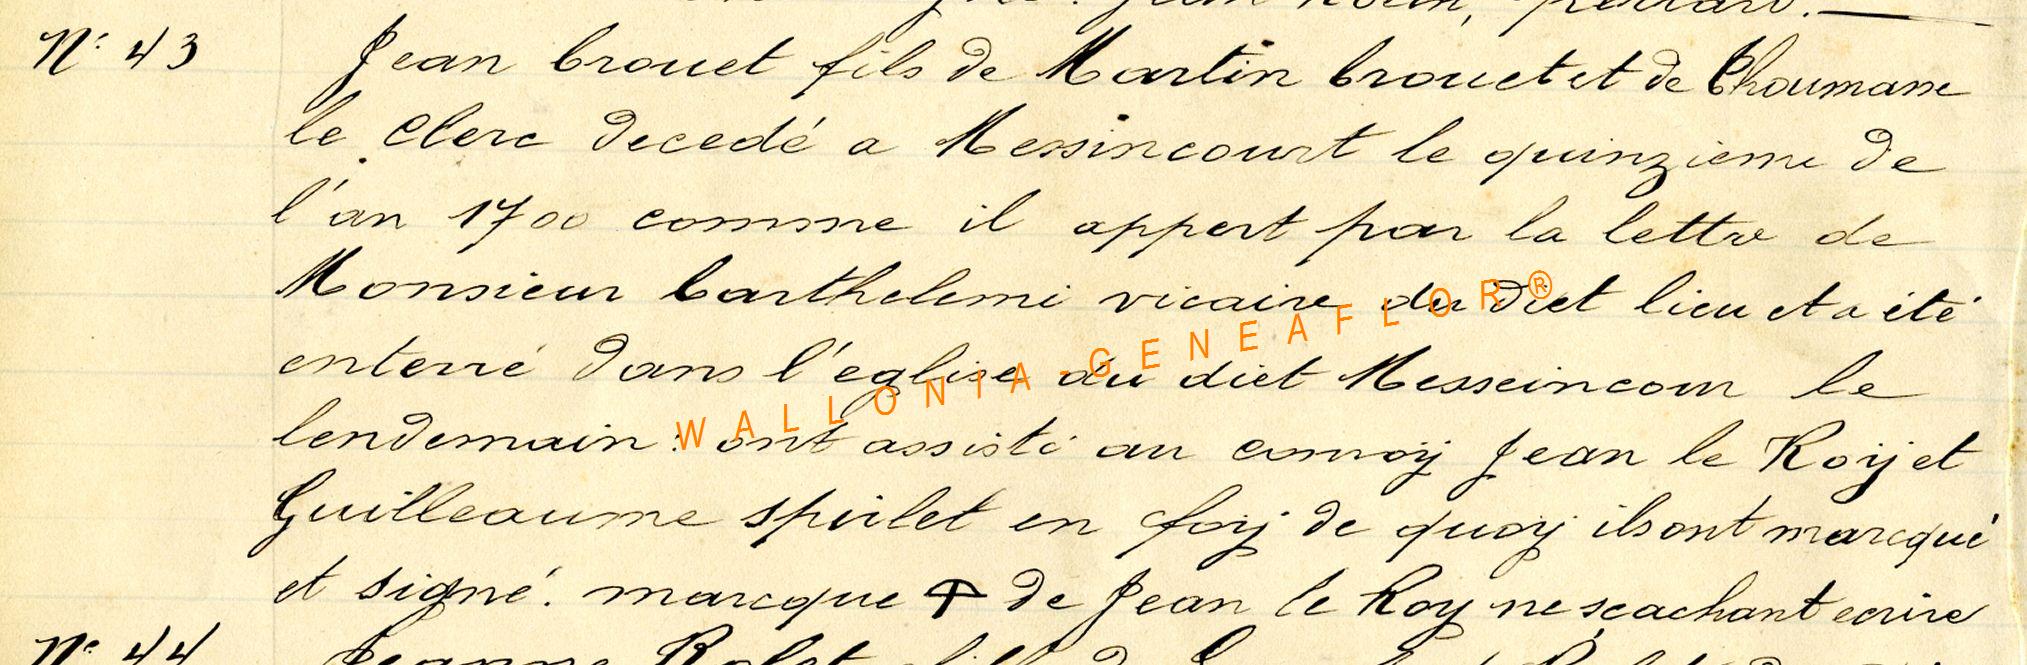 Jean Rolin,
N° 43 Jean brouet fils de Martin brouet et de Thoumane
le Clerc decedé a Messincourt le quinzieme de
l'an 1700 comme il appert par la lettre de
Monsieur barthelemi vicaire du diet lieu et a été
enterré dans l'église du diet Messeincour le
lendemain : ont assisté au convoÿ Jean le Roÿ et
Guilleaume spirlet en foÿ de quoÿ ils ont marcqué
et signé. marcque de Jean le Roy ne scachant ecrire
N° 44 Jeanne
WALLONIA-GENEAFLOR®